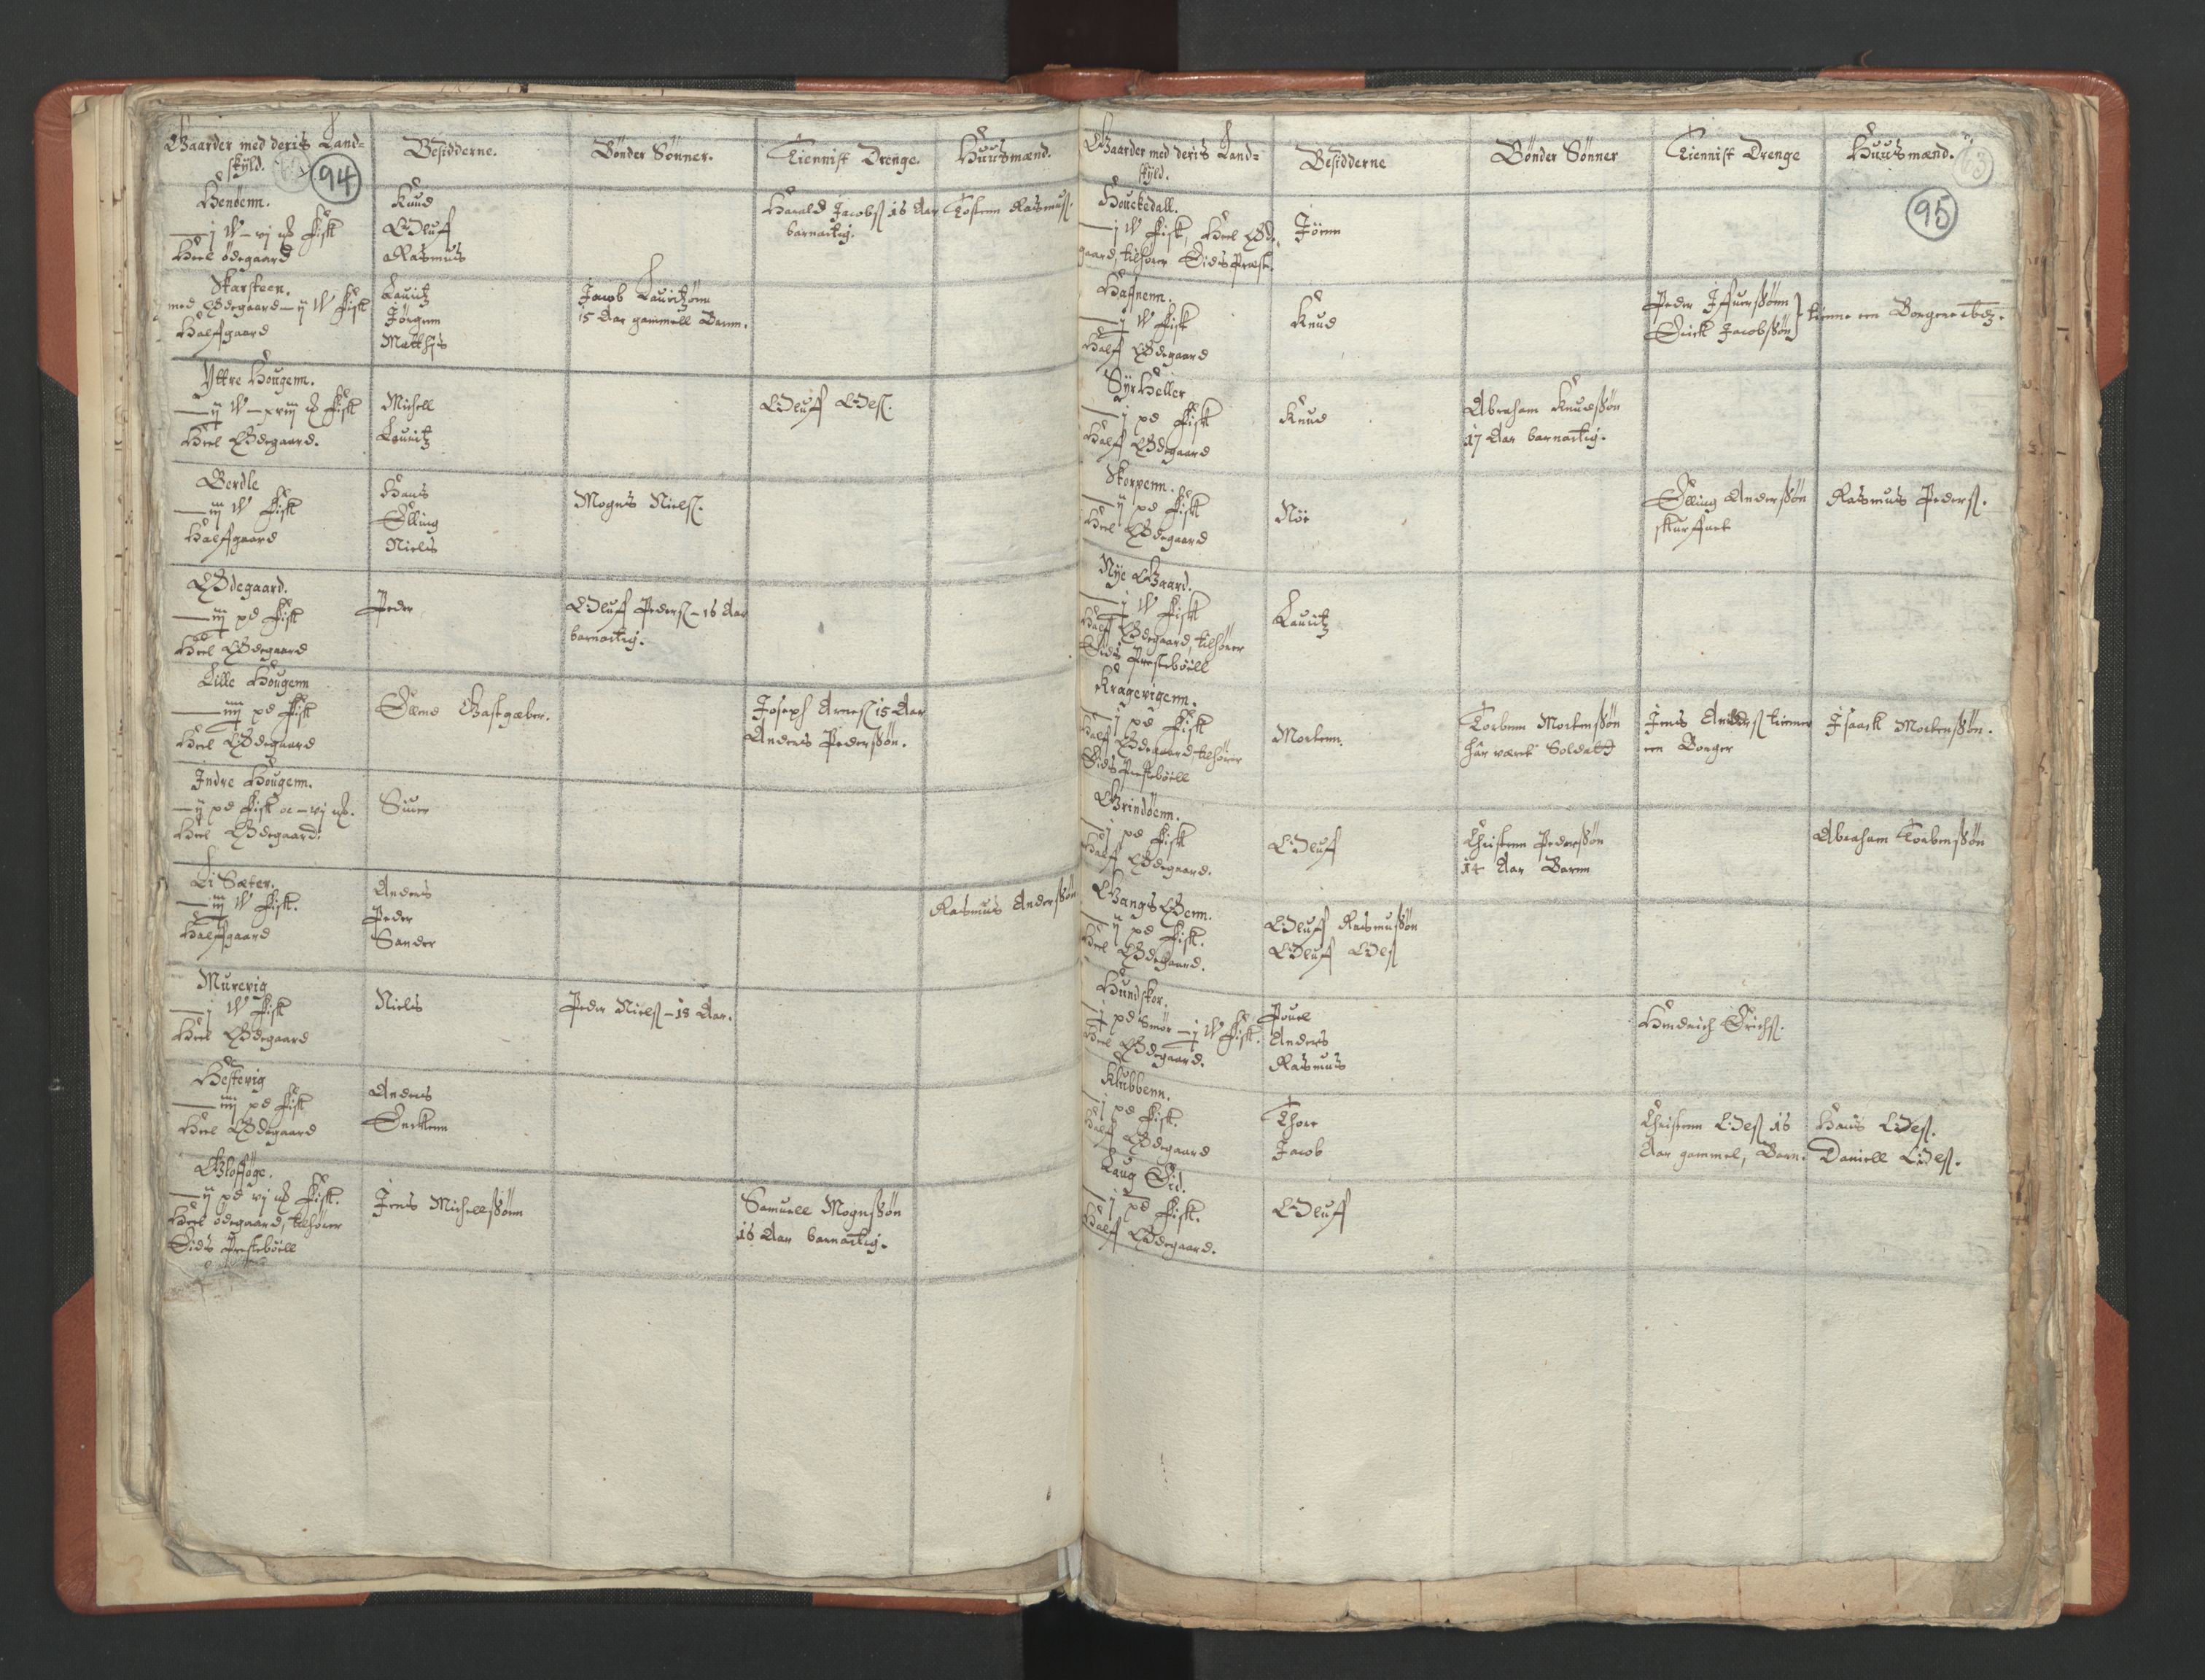 Gaarder med deris Land=
skyld.
94
Besidderne.
Bønder Sønner.
Tiennist Drenge.
Huusmænd.
Hendenn.
j W – vj Fisk
Heel ødegaard
Knud
Oluff
Rasmus
Harald Jacobs 16 Aar
barnactig.
Tostenn Rasmuss.
Skarsteen.
med Ødegaard – ij W Fisk
Halffgaard
Lauritz
Jørgenn
Matthjs
Jacob Lauritzønn
15 Aar gammell Barnn.
Yttre Hougenn.
ij W – xviij Fisk
Heel Ødegaard.
Michell
Lauritz
Oluff Olss.
Berdle
iij W Fisk
Halffgaard
Hans
Elling
Nielss
Mogns Nielss.
Ødegaard.
iij pd Fisk
Heel Ødegaard
Peder
Oluff Peders – 16 Aar
barnactig.
Lille Hougenn
iiij pd Fisk
Heel Ødegaard
Ellend Gastgæber.
Joseph Arness 15 Aar
Anders Pedersøn.
Indre Hougenn.
ij pd Fisk oc – vj
Heel Ødegaard.
Siuer
Li Sæter.
iij W Fisk.
Halffgaard
Anders
Peder
Sander
Rasmus Anderssøn
Murevig
j W Fisk
Heel Ødegaard
Niels
Peder Nielss – 18 Aar.
Hestevig
iiij pd Fisk
Heel Ødegaard
Anders
Encklenn
Gloføge.
ij pd vj Fisk.
Heel ødegaard, tilhører
Eids Prestebøell
Jens Michellssønn
Samuell Mognssøn
16 Aar barnactig.
Gaarder med deris Land=
skyld.
Besidderne
Bønder Sønner
Tiennist Drenge
Huusmænd.
63
95
Houckedall.
j W Fisk, Heel Øde
gaard, tilhører Eids Præst.
Jørenn
Hafnenn.
j W Fisk
Half Ødegaard
Knud
Peder Iffuerssønn
Erick Jacobssøn
tienne een Borgere
SyrHeller
j pd Fisk
Half Ødegaard
Knud
Abraham Knudssøn
17 Aar barnactig.
Skorpenn.
ij pd Fisk
Heel Ødegaard
Nøe
Elling Anderssøn
skurffuet
Rasmus Peders.
Nye Gaard.
j W Fisk
Half Ødegaard, tilhører
Eids Prestebøell
Lauritz
Kragevigenn.
j pd Fisk
Half Ødegaard, tilhører
Eids Prestebøell
Mortenn.
Torbenn Mortenssøn
har værit Soldatt
Jens Anderss tienner
een Borger
Isaack Mortenssøn.
Grindøenn.
j pd Fisk
Half Ødegaard.
Oluff
Christenn Pederssøn
14 Aar Barnn
Abraham Torbenssøn
GangsØenn.
ij pd Fisk.
Heel Ødegaard.
Oluff Rasmussøn
Oluff Olss
Hundskor.
j pd Smør – j W Fisk.
Heel Ødegaard.
Pouel
Anders
Rasmus
Hendrich Erichss.
Klubbenn.
j pd Fisk.
Half Ødegaard
Thore
Jacob
Christenn Olss 16
Aar gammel, Barn.
Hans Olss.
Daniell Olss.
Laug Eid.
j pd Fisk.
Half Ødegaard.
Oluff